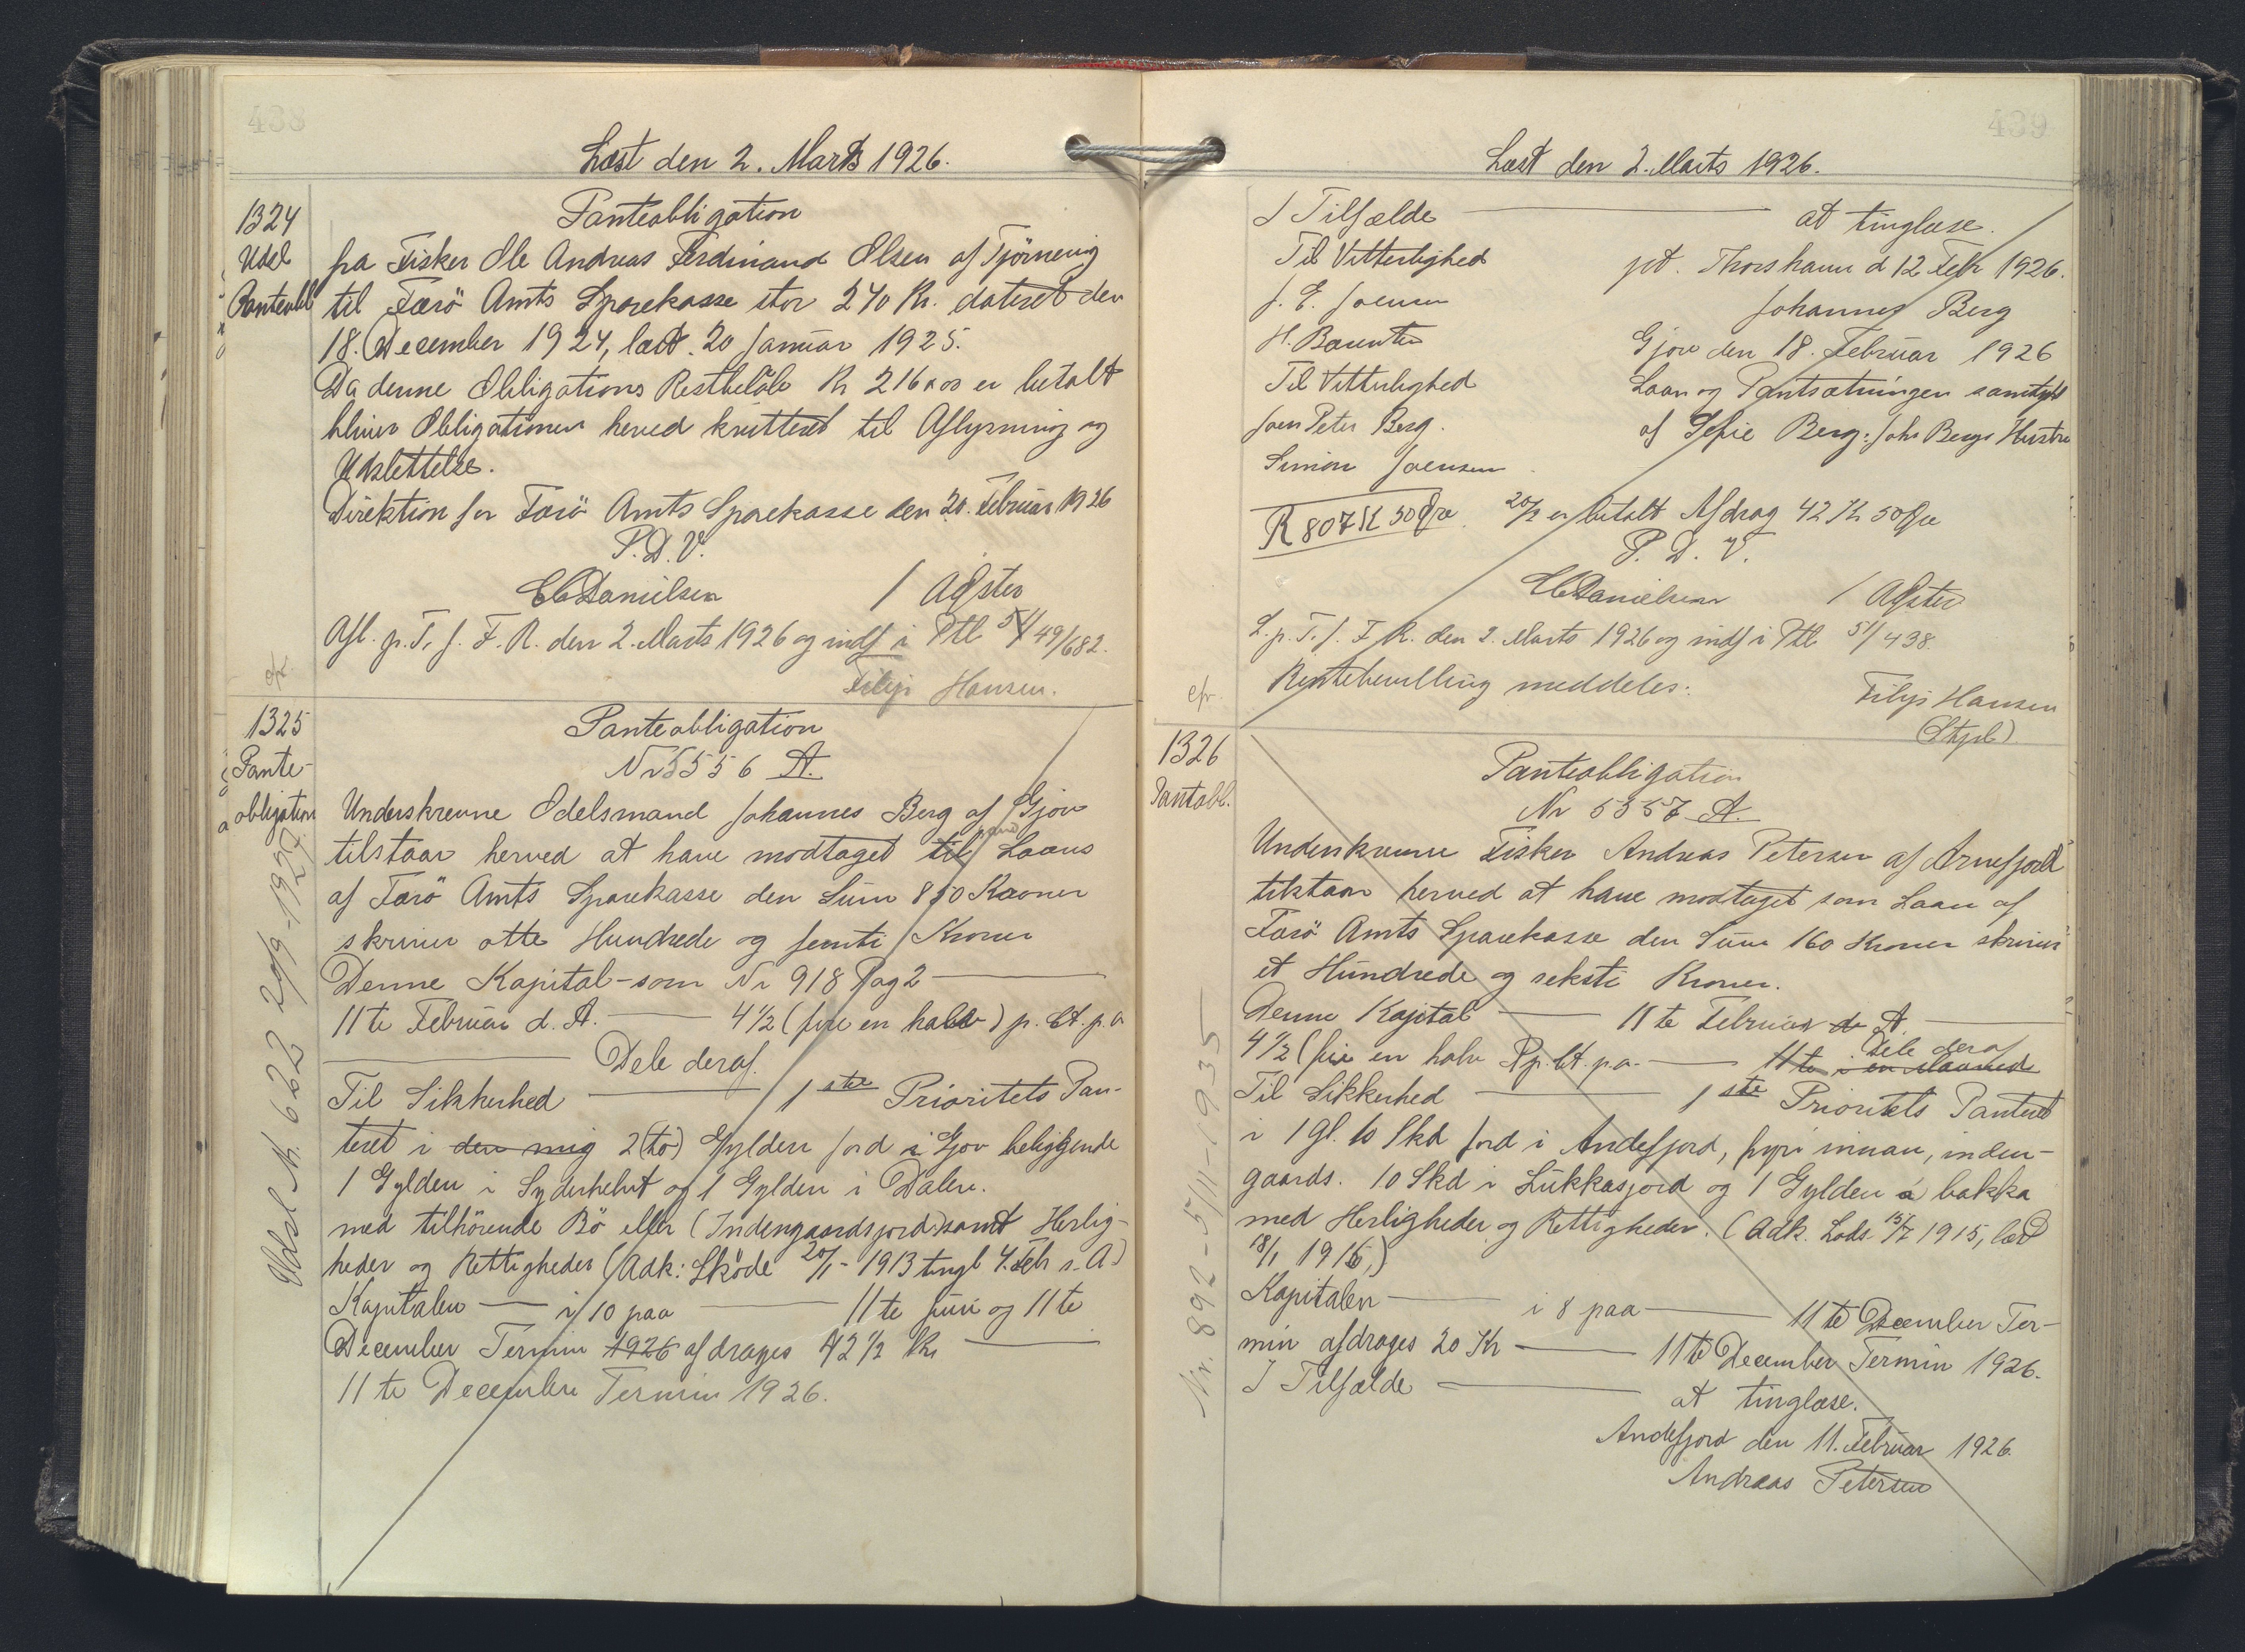 438
Læst den 2. Marts 1926.
1324
Udsl
Panteobl
Panteobligation
fra Fisker Ole Andreas Ferdinand Olsen af Tjørnevig
til Færö Amts Sparekasse stor 240 Kr. dateret den
18. December 1924, læst 20 Januar 1925.
Da denne Obligations Restbelöb Kr 216 00 er betalt
bliver Obligationen herved kvitteret til Aflysning og
Udslettelse.
Direktion for Færö Amts Sparekasse den 20. Februar 1926
P.D.V.
CDanielsen / 
Afl. p. T. f. F. R. den 2. Marts 1926 og indf i Ptl 49/682.
Filip Hansen.
cfr.
1325
Pante-
obligation
Udsl Nr. 622 29/9-1927
Panteobligation
Nr 5556 A.
Underskrevne Odelsmand Johannes Berg af Gjov
tilstaar herved at have modtaget til Laans
af Færö Amts Sparekasse den Sum 850 Kroner
skriver otte Hundrede og femti Kroner
Denne Kapital - som Nr 918 Pag 2
11te Februar d. A. 4 1/2 (fire en halv) p. Ct. p. a
Dele deraf.
Til Sikkerhed 1ste Prioritets Pan-
teret i den mig 2 (to) Gylden Jord i Gjov beliggende
1 Gylden i Syderhelvt og 1 Gylden i Dalen.
med tilhörende Bö eller (Indengaardsjord) samt Herlig-
heder og Rettigheder (Adk: Sköde 20/1 - 1913 tingl 4. Feb s. A.)
Kapitalen i 10 paa 11te Juni og 11te
December Termin 1926 afdrages 42 1/2 Kr
11te December Termin 1926.
439
Læst den 2. Marts 1926.
I Tilfælde at tinglæse.
Til Vitterlighed pt. Thorshavn d 12 Febr 1926.
J. E. Joensen Johannes Berg
H. Gjov den 18. Februar 1926
Til Vitterlighed Laan og Pantsætningen samtykt
Joen Peter Berg. af Sofie Berg: Johs Bergs Hustru
Simon Joensen
R 807 K 50 Øre 20/2 er betalt Afdrag 42 Kr 50 Øre
P. D. V.
CDanielsen / 
L. p. T. f. F. R. den 2. Marts 1926 og indf i Ptl 51/438.
cfr. Rentebevilling meddeles: Filip Hansen
(Stpl)
1326
Panteobl.
Nr. 892-5/11-1935
Panteobligation
Nr 5557 A.
Underskrevne Fisker Andreas Petersen af Arnefjord
tilstaar herved at have modtaget som Laan af
Færö Amts Sparekasse den Sum 160 Kroner skriver
et Hundrede og seksti Kroner.
Denne Kapital 11te Februar d. A.
4 1/2 (fire en halv) p. Ct. p. a. 11te i en Maaned Dele deraf
Til Sikkerhed 1ste Prioritets Panteret
i 1 Gl. 10 Skd Jord i Andefjord, fyri innan, inden-
gaards. 10 Skd i Lukkasjord og 1 Gylden á bakka
med Herligheder og Rettigheder. (Adk. Lods. 15/7 1915, læst
18/1 1916,)
Kapitalen i 8 paa 11te December Ter-
min afdrages 20 Kr 11te December Termin 1926.
I Tilfælde at tinglæse.
Andefjord den 11. Februar 1926.
Andreas Petersen